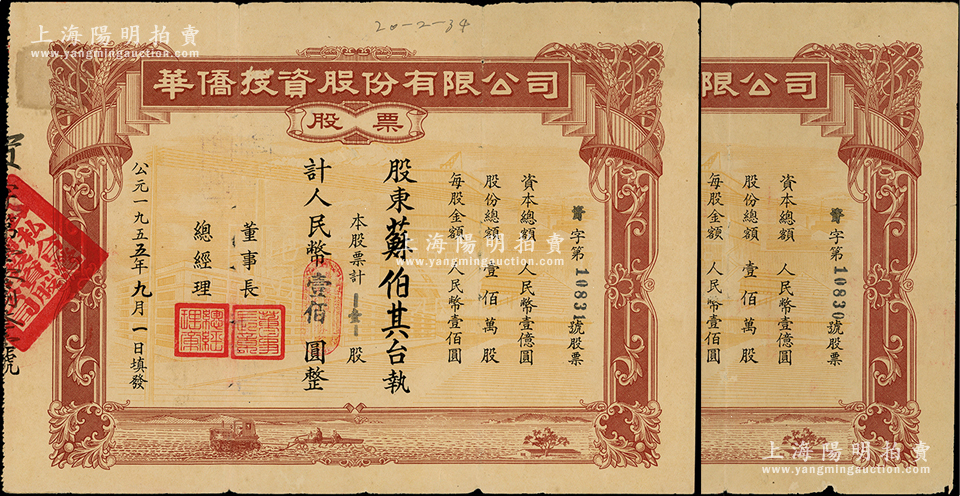 上海陽明拍賣
www.yangmingauction.com
20-2-34
華僑投資股份有限公司
股票
資字第10831號股票
資本總額 人民幣壹億圓
股份總額 壹佰萬股
每股金額 人民幣壹佰圓
股東蘇伯其台執
本股票計 壹 股
計人民幣壹佰圓整
董事長
總經理
公元一九五五年九月一日填發
限公司
資字第10830號股票
資本總額 人民幣壹億圓
股份總額 壹佰萬股
每股金額 人民幣壹佰圓
上海陽明拍賣
www.yangmingauction.com
上海陽明拍賣
www.yangmingauction.com